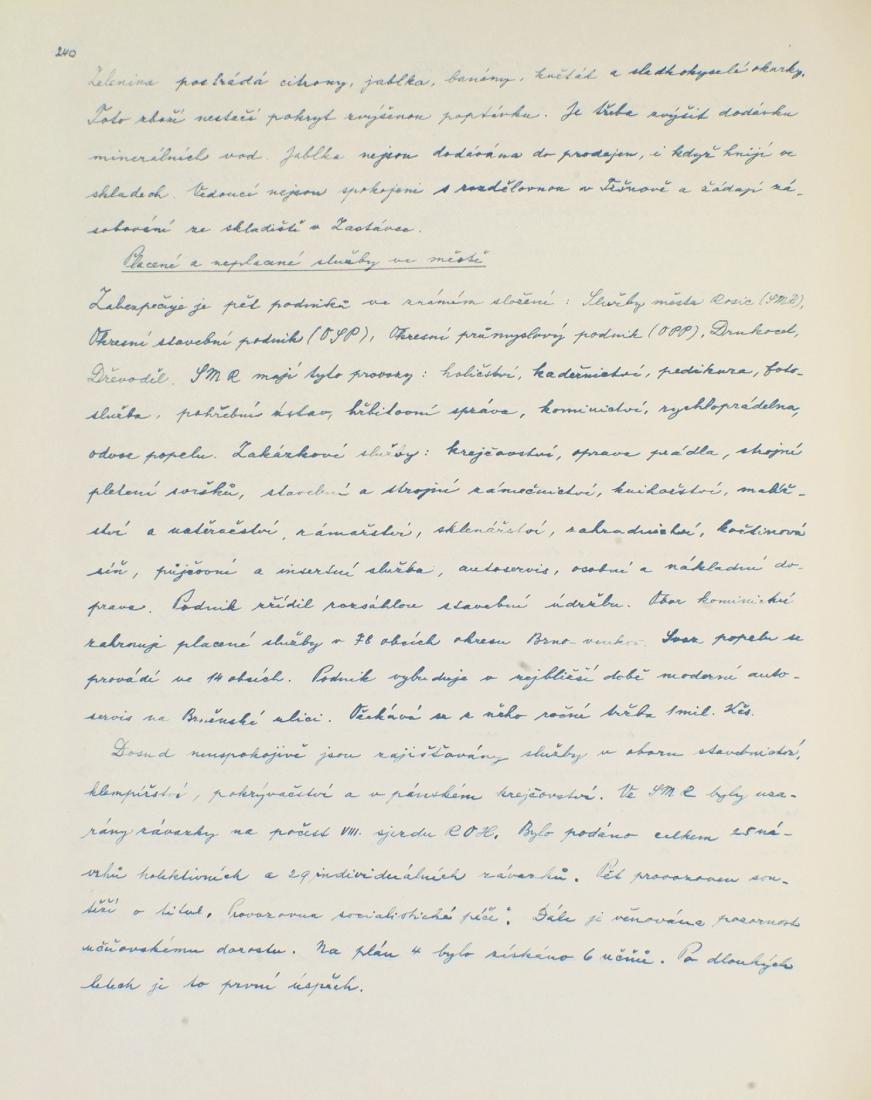 240
Zelenina postrádá citrony, jablka, banány, květák a sladkokyselé okurky.
Toto zboží nestačí pokrýt zvýšenou poptávku. Je třeba zvýšit dodávku
minerálních vod. Jablka nejsou dodávána do prodejen, i když hnijí ve
skladech. Vedoucí nejsou spokojeni s rozdělovnou v Tišnově a žádají zá-
sobování ze skladiště v Zastávce.
Placené a neplacené služby ve městě
Zabezpečuje je pět podniků ve známém složení: Služby města Rosic (SMR),
Okresní stavební podnik (OSP), Okresní průmyslový podnik (OPP), Drukocel,
Dřevodíl. SMR mají tyto provozy: holičství, kadeřnictví, pedikura, foto-
služba, pohřební ústav, hřbitovní správa, kominictví, rychloprádelna,
odvoz popelu. Zakázkové služby: krejčovství, oprava prádla, strojní
pletení svršků, stavební a strojní zámečnictví, knihařství, malíř-
ství a natěračství, rámařství, sklenářství, zahradnictví, květinová
síň, půjčovní a insertní služba, autoservis, osobní a nákladní do-
prava. Podnik zřídil rozsáhlou stavební údržbu. Obor kominictví
zahrnuje placené služby v 76 obcích okresu Brno-venkov. Svoz popelu se
provádí ve 14 obcích. Podnik vybuduje v nejbližší době moderní auto-
servis na Brněnské ulici. Očekává se z něho roční tržba 1 mil. Kčs.
Dosud neuspokojivě jsou zajišťovány služby v oboru stavebnictví,
klempířství, pokrývačství a v pánském krejčovství. Ve SMR byly uza-
vrány závazky na počest VIII. sjezdu ROH. Bylo podáno celkem 25 ná-
vrhů kolektivních a 29 individuálních závazků. Pět provozoven sou-
těží o titul „Provozovna socialistické péče". Dále je věnována pozornost
učňovskému dorostu. Na plán 4 bylo získáno 6 učňů. Po dlouhých
letech je to první úspěch.